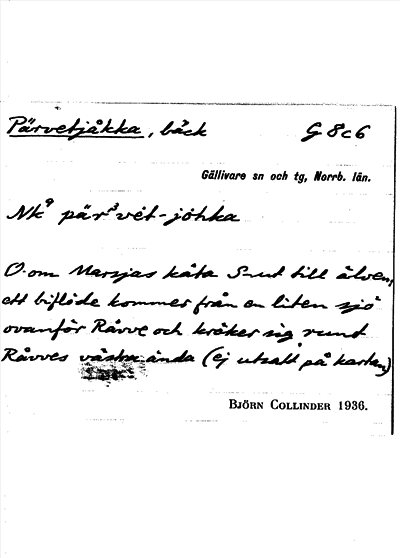 Pärvetjåkka, bäck G 8c6
Gällivare sn och tg, Norrb. län.
Nk⁹ pär³vėt-jöhka
O. om Marsjas kåta S-ut till älven,
ett biflöde kommer från en liten sjö
ovanför Råvve och kröker sig runt
Råvves västra ända (ej utsatt på kartan)
BJÖRN COLLINDER 1936.